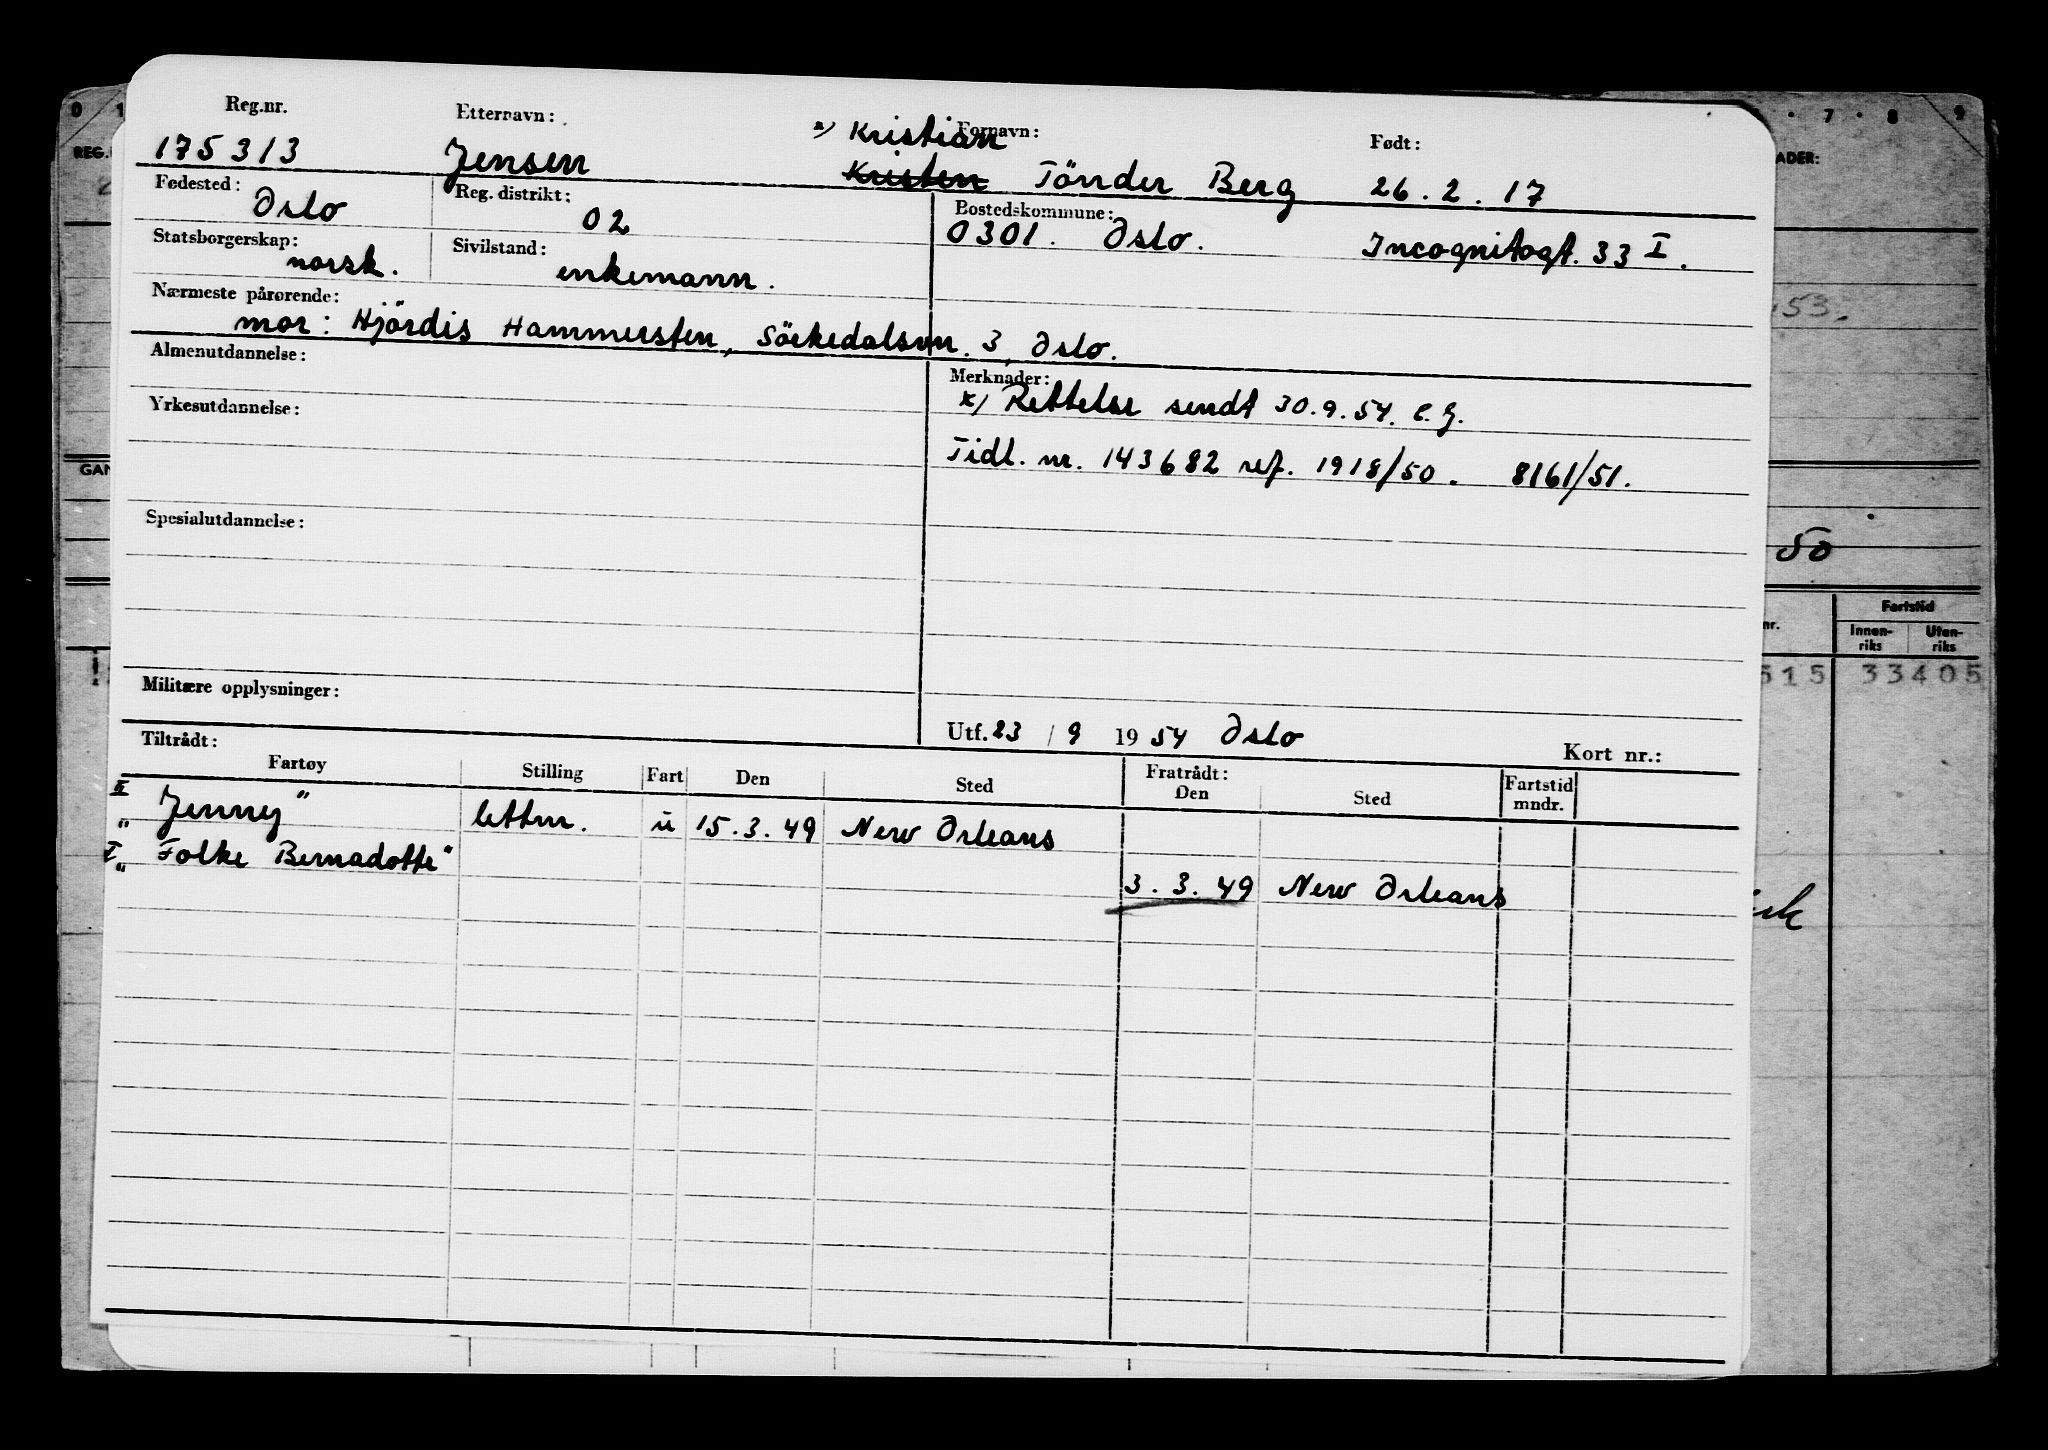 0 1 · 7 · 8 9
Reg.nr. Etternavn: Fornavn: Født:
x) Kristian
175313 Jensen Kristen Tönder Berg 26.2.17
REG. ADER:
Fødested: Oslo Reg. distrikt: 02 Bostedskommune: 0301. Oslo. Incognitogt. 33 I.
Statsborgerskap: norsk. Sivilstand: enkemann.
Nærmeste pårørende:
mor: Hjördis Hammersten, Sörkedalsvn. 3, Oslo.
53.
Almenutdannelse: Merknader:
x) Rettelse sendt 30.9.54.
Yrkesutdannelse:
Tidl. nr. 143682 ref. 1918/50. 8161/51.
GAN
Spesialutdannelse:
50
Fartstid
nr. Innen-riks Uten-riks
515 33405
Militære opplysninger:
Utf. 23 / 9 19 54 Oslo
Tiltrådt: Kort nr.:
Fartøy Stilling Fart Den Sted Fratrådt: Den Sted Fartstid mndr.
II „Jenny" lettm. u 15.3.49 New Orleans
I „Folke Bernadotte" 3.3.49 New Orleans